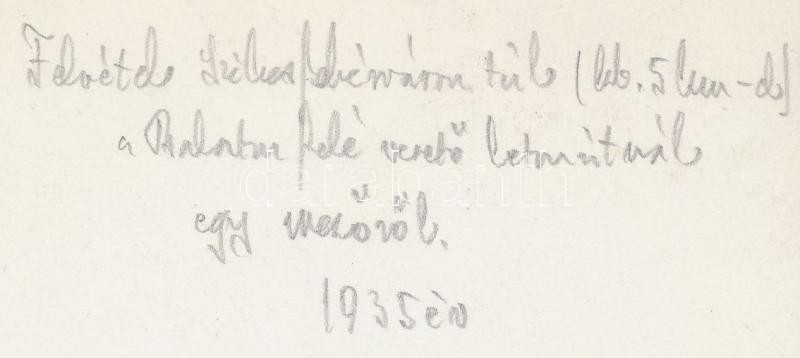 Felvétel Székesfehérváron túl (kb. 5 km-el)
a Balaton felé vezető betonútnál
egy mezőről.
1935 év
darabanth